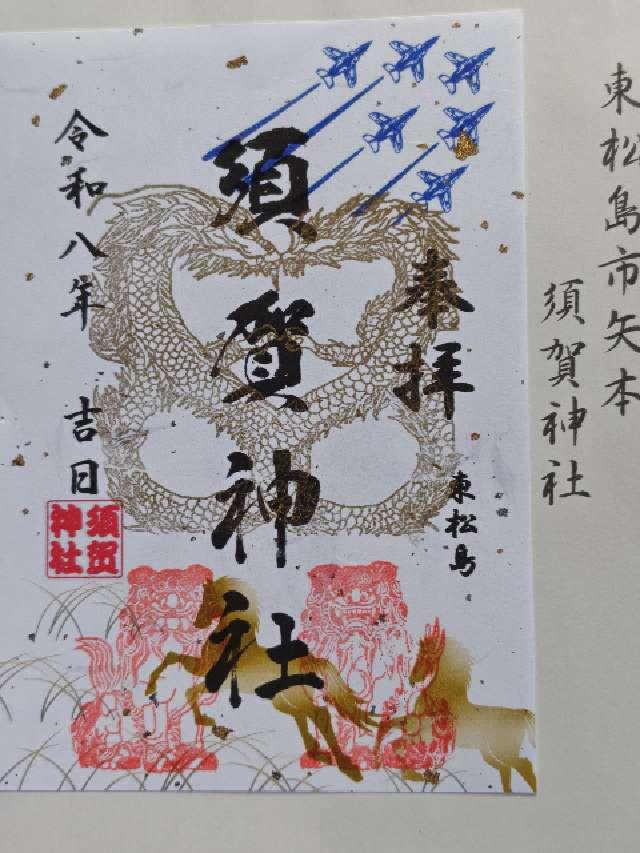 東松島市矢本
須賀神社
奉拝
東松島
須賀神社
令和八年 吉日
須賀
神社